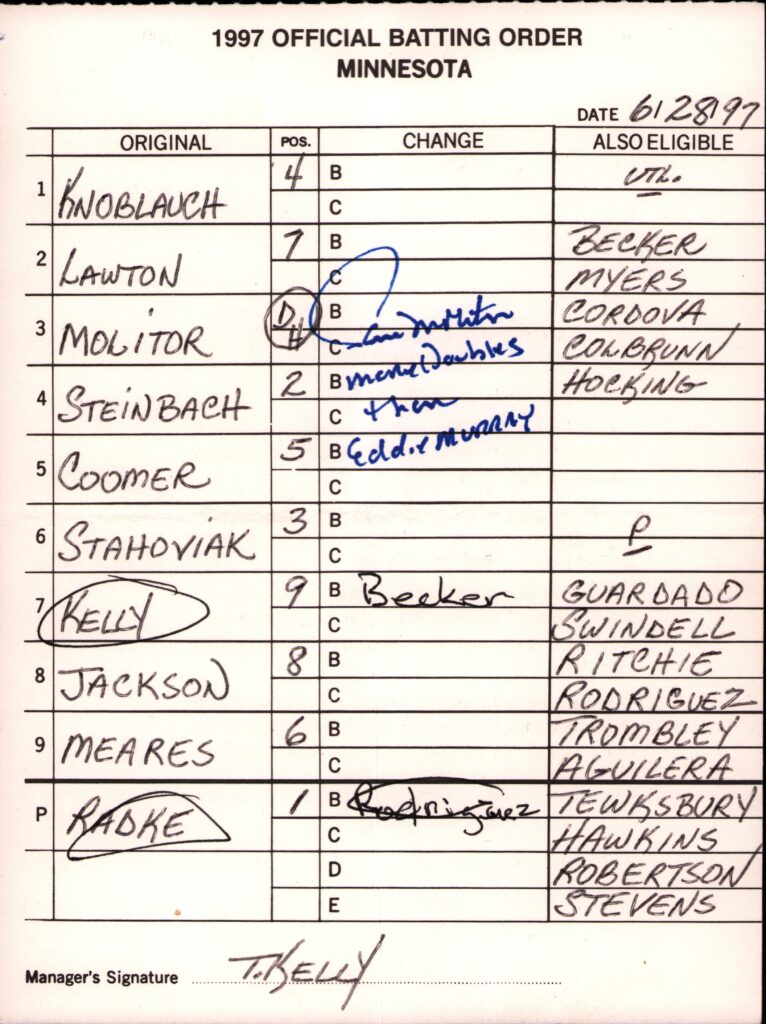 1997 OFFICIAL BATTING ORDER
MINNESOTA
DATE 6/28/97
ORIGINAL POS. CHANGE ALSO ELIGIBLE
1 KNOBLAUCH 4 B UTL.
C
2 LAWTON 7 B BECKER
C MYERS
3 MOLITOR DH B CORDOVA
C Molitor COLBRUNN
4 STEINBACH 2 B more Doubles HOCKING
C than
5 COOMER 5 B Eddie MURRAY
C
6 STAHOVIAK 3 B P
C
7 KELLY 9 B Becker GUARDADO
C SWINDELL
8 JACKSON 8 B RITCHIE
C RODRIGUEZ
9 MEARES 6 B TROMBLEY
C AGUILERA
P RADKE 1 B Rodriguez TEWKSBURY
C HAWKINS
D ROBERTSON
E STEVENS
Manager's Signature T. KELLY